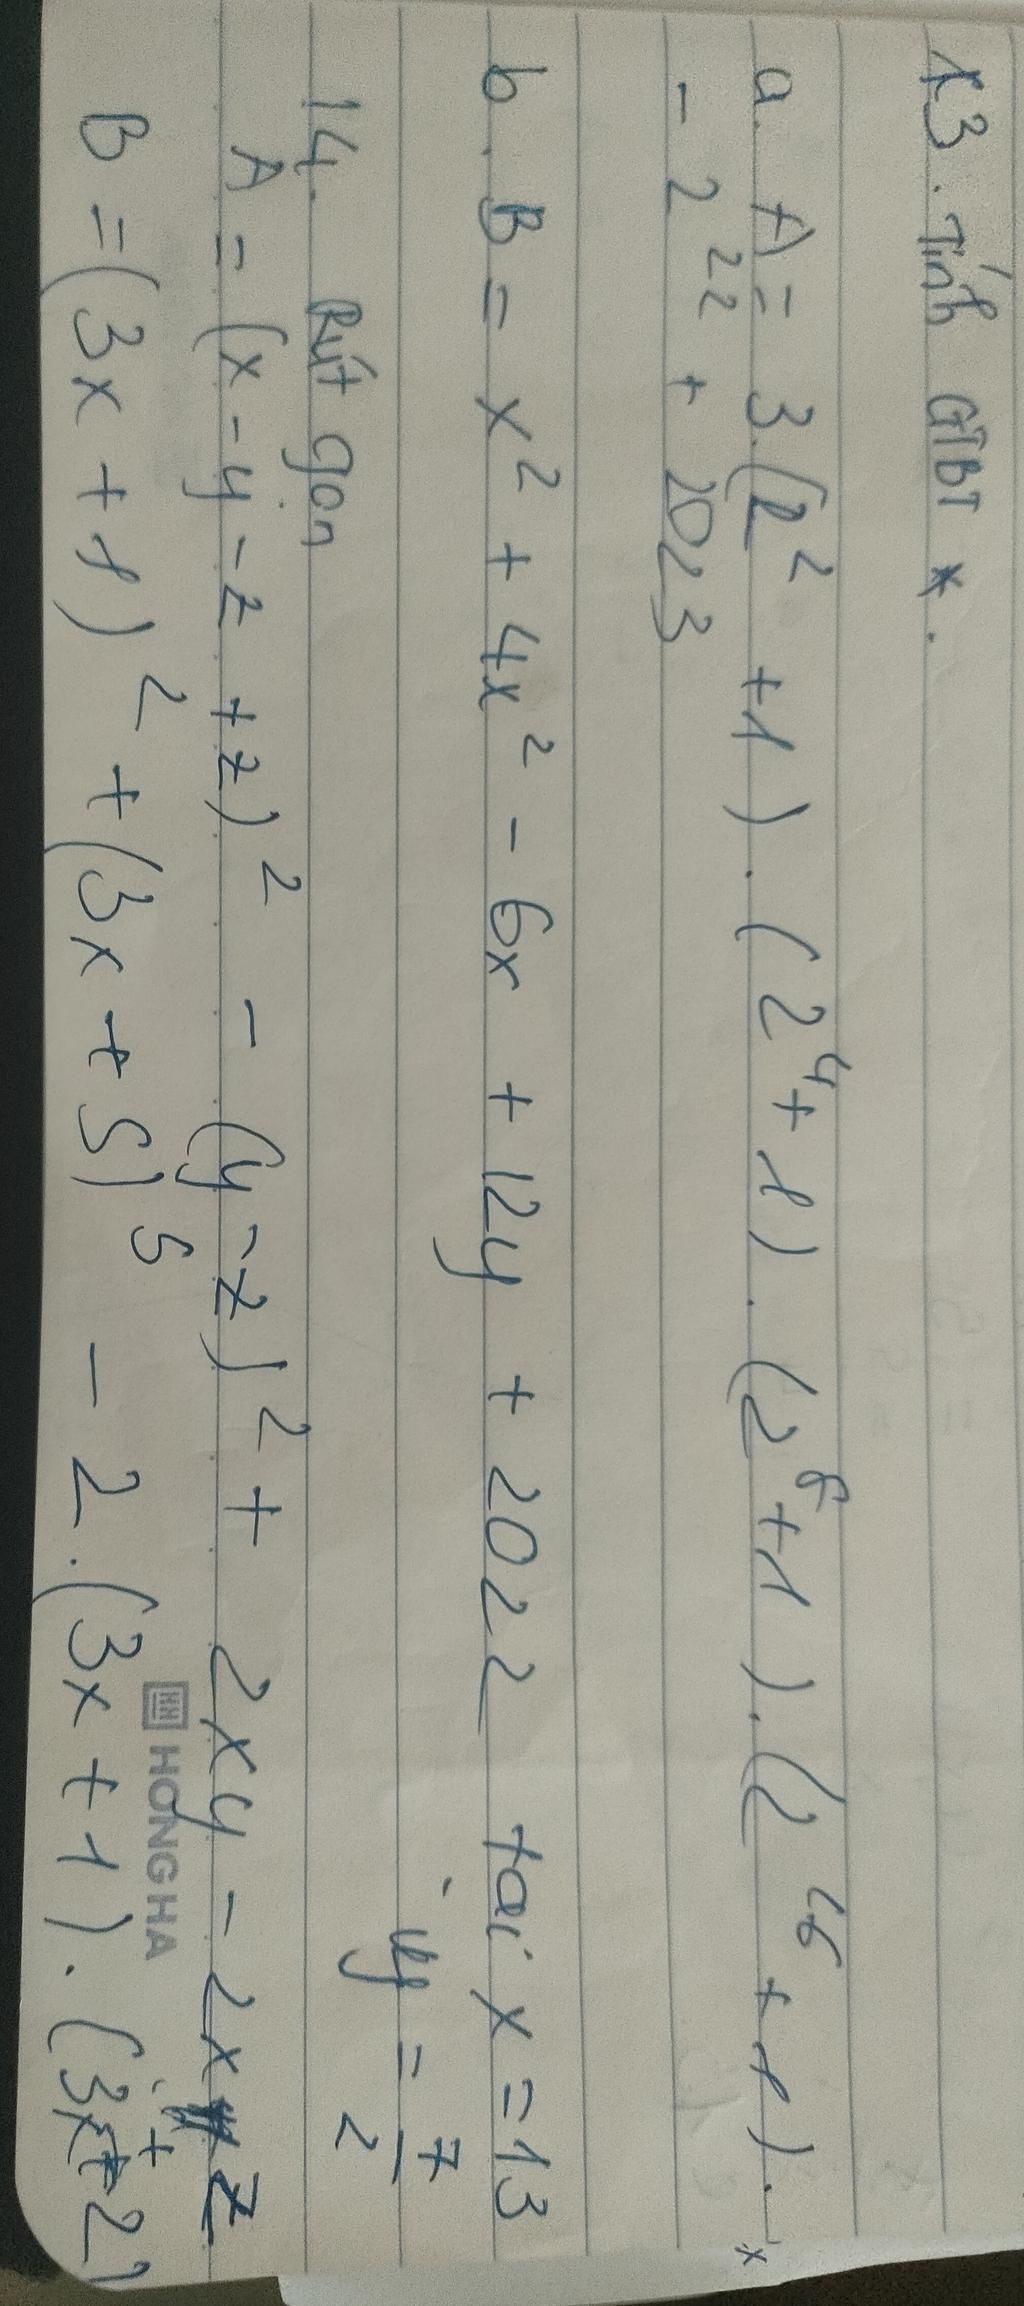 13. Tính GTBT *.
a. A = 3.(2² +1).(2⁴+1).(2⁸+1).(2¹⁶+1).
- 2²² + 2023
b. B = x² + 4x² - 6x + 12y + 2022 tại x = 13
y = 7/2
14. Rút gọn
A = (x-y-z+z)² - (y-z)² + 2xy - 2xz
B = (3x+1)² + (3x+5)⁵ - 2.(3x+1).(3x+2)
HONG HA